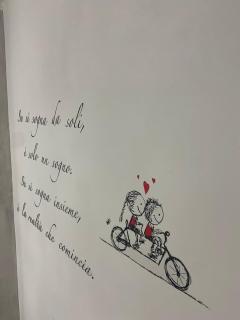 Se si sogna da soli,
è solo un sogno.
Se si sogna insieme,
è la realtà che comincia.